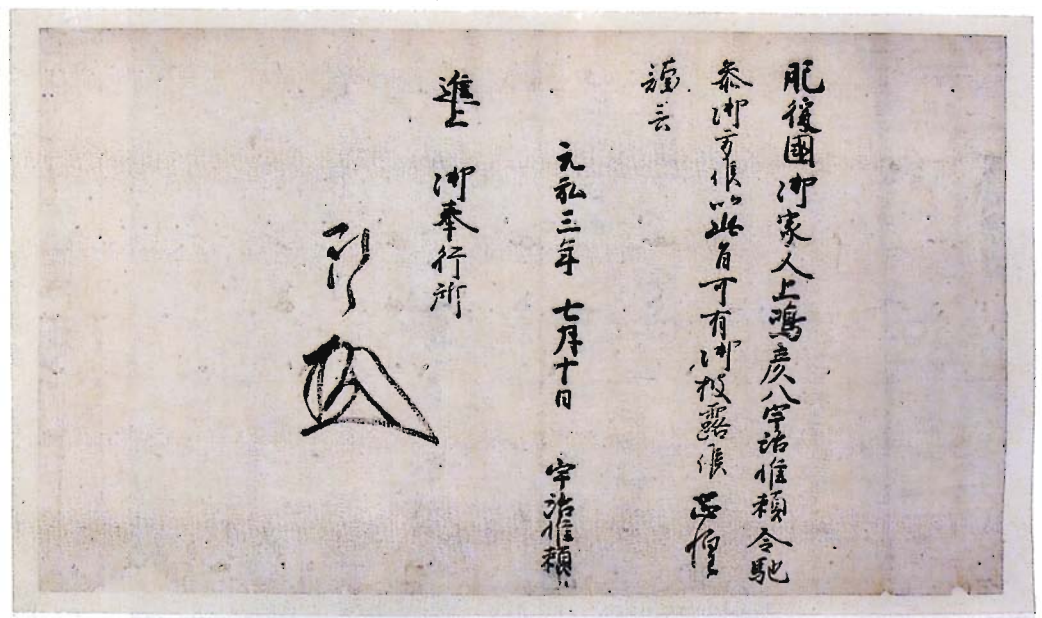 肥後國御家人上嶋彦八宇治惟頼令馳
参御方候以此旨可有御披露候恐惶
謹言
元弘三年七月十日　宇治惟頼
進上　御奉行所
承了